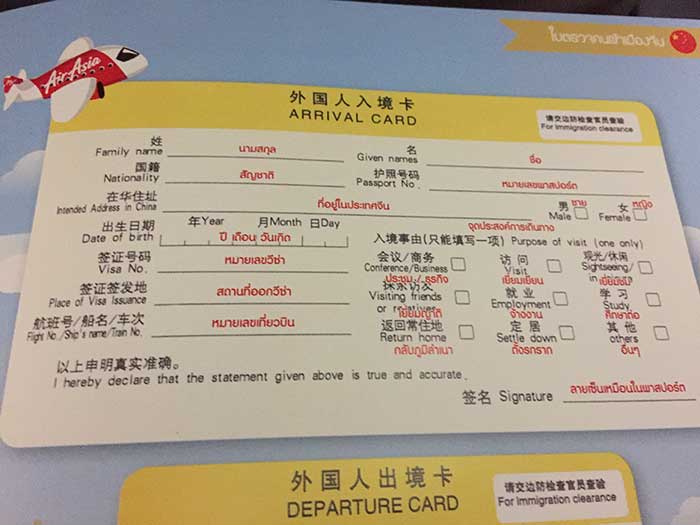 AirAsia
ใบตรวจคนเข้าเมืองจีน
外国人入境卡
ARRIVAL CARD
请交边防检查官员查验
For Immigration clearance
姓
Family name
นามสกุล
名
Given names
ชื่อ
国籍
Nationality
สัญชาติ
护照号码
Passport No.
หมายเลขพาสปอร์ต
在华住址
Intended Address in China
ที่อยู่ในประเทศจีน
男 ชาย
Male
女 หญิง
Female
出生日期
Date of birth
年Year 月Month 日Day
ปี เดือน วันเกิด
จุดประสงค์การเดินทาง
入境事由(只能填写一项) Purpose of visit (one only)
签证号码
Visa No.
หมายเลขวีซ่า
会议/商务
Conference/Business
ประชุม/ธุรกิจ
访问
Visit
เยี่ยมเยียน
观光/休闲
Sightseeing/
签证签发地
Place of Visa Issuance
สถานที่ออกวีซ่า
探亲访友
Visiting friends
or relatives
เยี่ยมญาติ
就业
Employment
จ้างงาน
学习
Study
ศึกษาต่อ
航班号/船名/车次
Flight No./Ship's name/Train No.
หมายเลขเที่ยวบิน
返回常住地
Return home
กลับภูมิลำเนา
定居
Settle down
ตั้งรกราก
其他
others
อื่นๆ
以上申明真实准确。
I hereby declare that the statement given above is true and accurate.
签名 Signature
ลายเซ็นเหมือนในพาสปอร์ต
外国人出境卡
DEPARTURE CARD
请交边防检查官员查验
For Immigration clearance